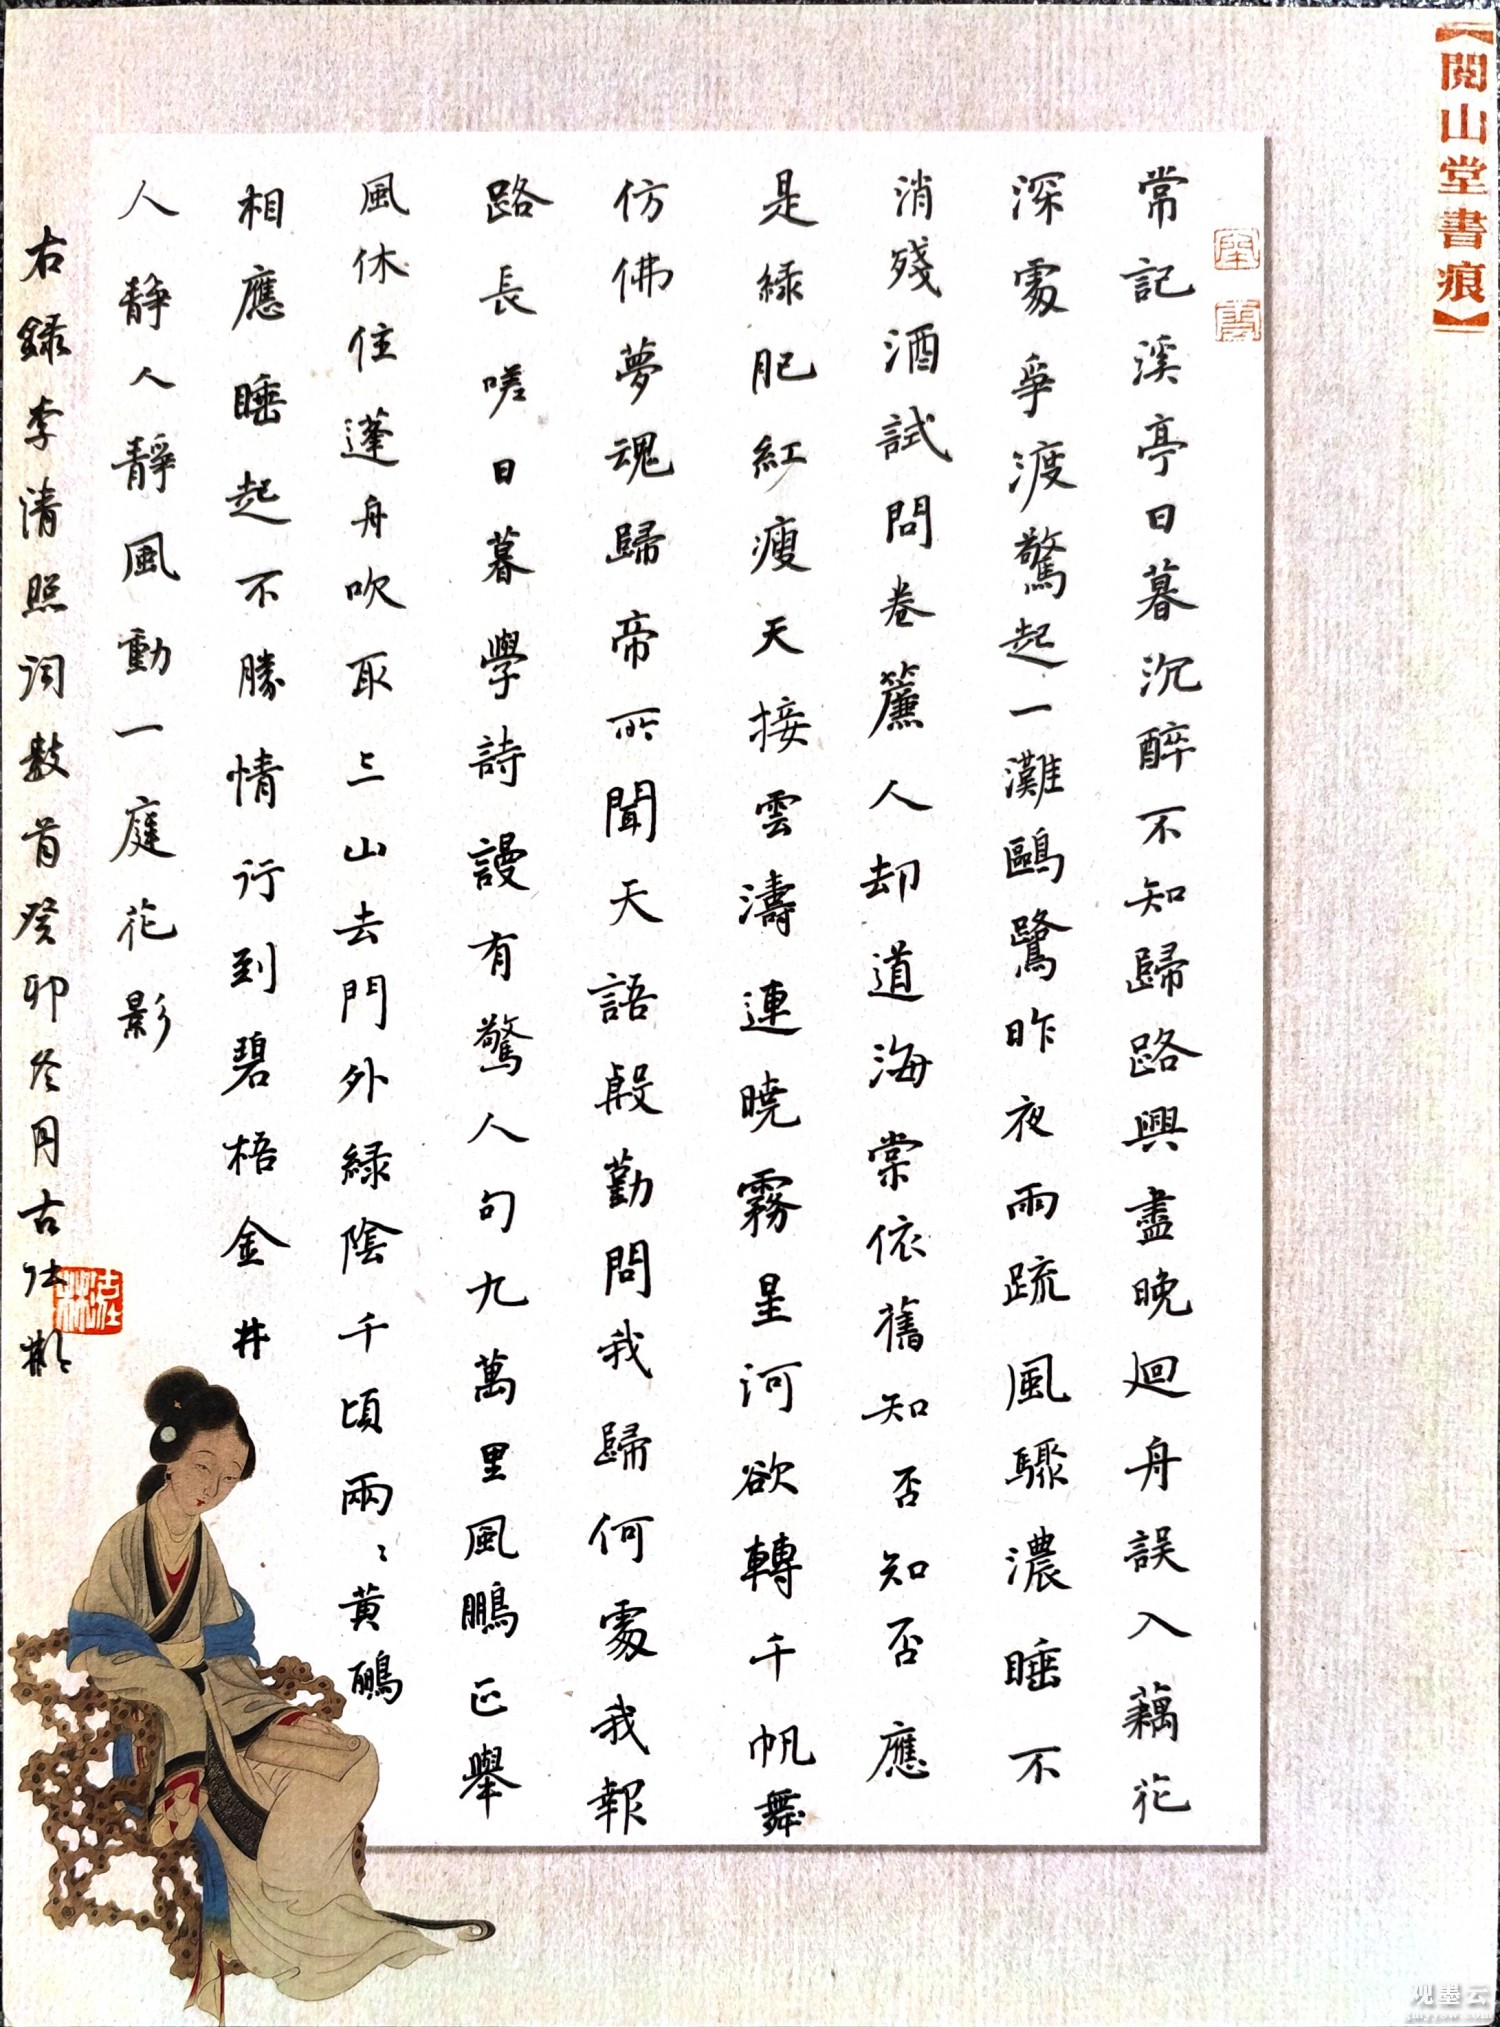 【閱山堂書痕】
常記溪亭日暮沉醉不知歸路興盡晚迴舟誤入藕花
深處爭渡驚起一灘鷗鷺昨夜雨疏風驟濃睡不
消殘酒試問卷簾人却道海棠依舊知否知否應
是綠肥紅瘦天接雲濤連曉霧星河欲轉千帆舞
仿佛夢魂歸帝所聞天語殷勤問我歸何處我報
路長嗟日暮學詩謾有驚人句九萬里風鵬正舉
風休住蓬舟吹取三山去門外綠陰千頃兩〻黃鸝
相應睡起不勝情行到碧梧金井
人靜人靜風動一庭花影
右錄李清照詞數首癸卯冬月古
观墨云